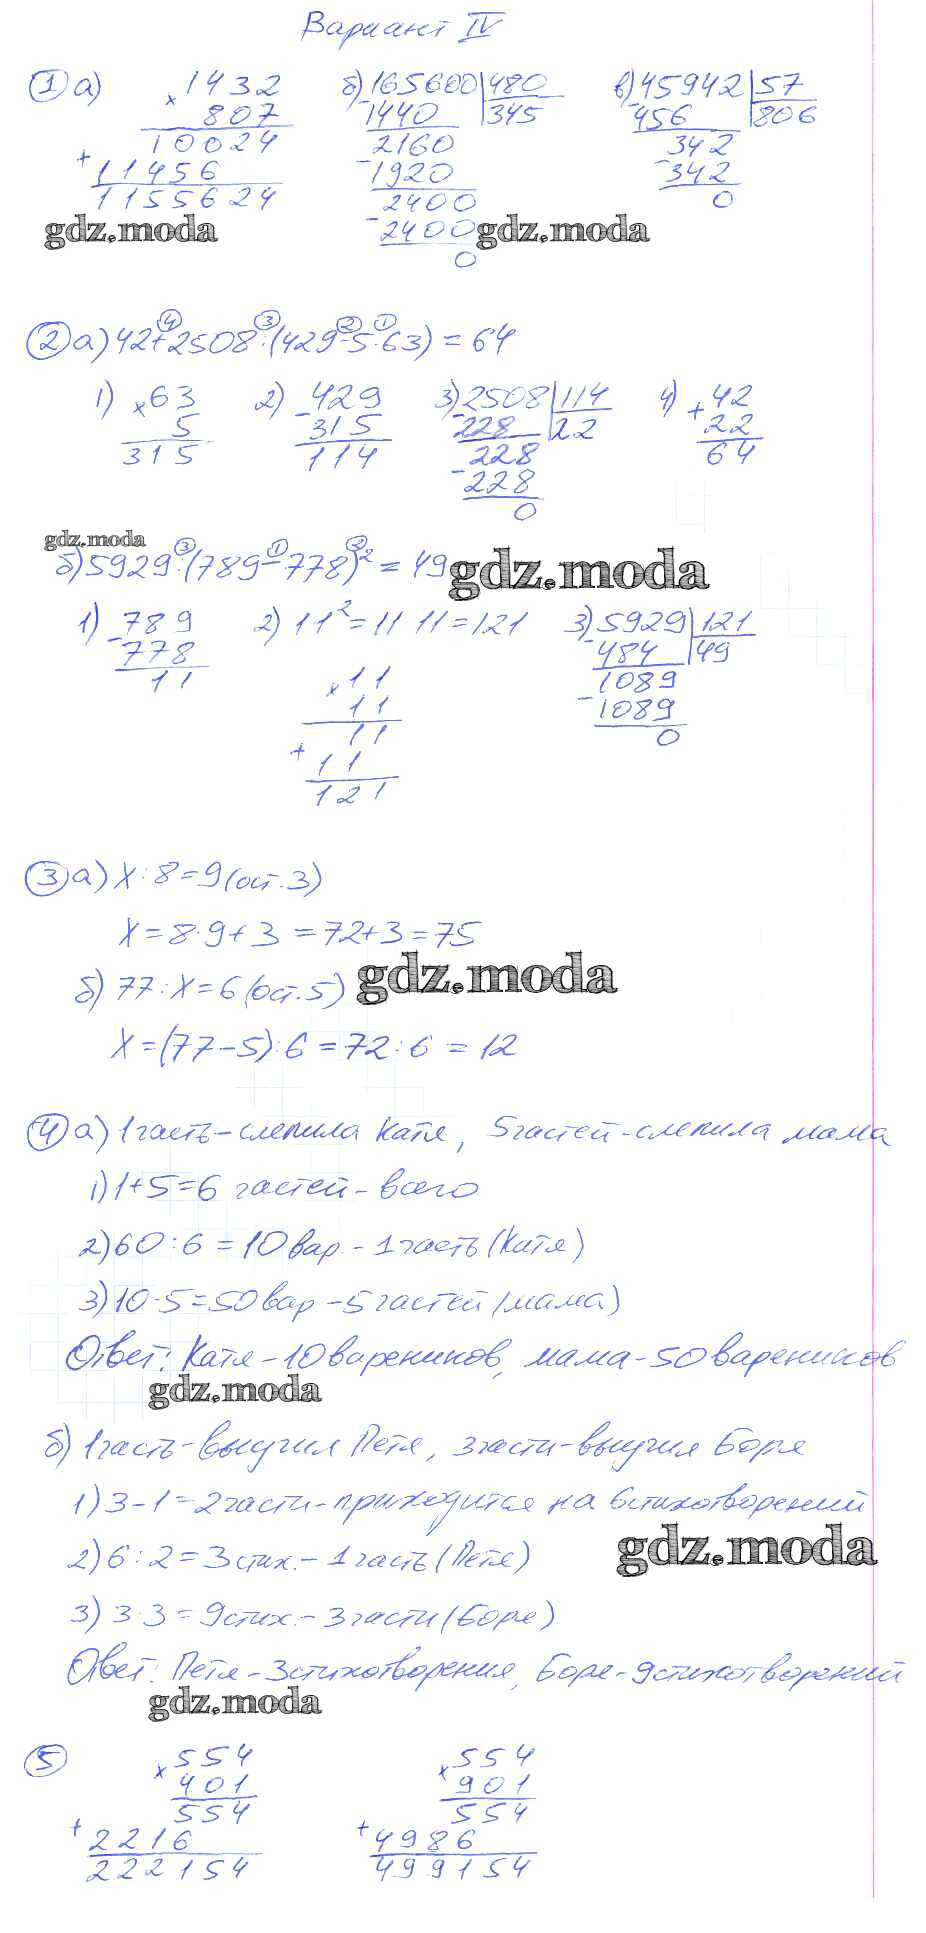 Вариант IV
① а) × 1432 б) 165600 | 480 в) 45942 | 57
807 - 1440 345 - 456 806
10024 2160 342
+ 11456 - 1920 - 342
1155624 2400 0
gdz.moda - 2400 gdz.moda
0
② а) 42+2508:(429-5·63) = 64
④ ③ ② ①
1) × 63 2) - 429 3) 2508 | 114 4) + 42
5 315 - 228 22 22
315 114 228 64
- 228
0
gdz.moda
б) 5929:(789-778)² = 49 gdz.moda
③ ① ②
1) - 789 2) 11² = 11 11 = 121 3) 5929 | 121
778 - 484 49
11 × 11 1089
11 - 1089
11 0
+ 11
121
③ а) х:8=9(ост.3)
х=8·9+3=72+3=75
gdz.moda
б) 77:х=6(ост.5)
х=(77-5):6=72:6=12
④ а) 1часть-слепила Катя, 5частей-слепила мама
1) 1+5=6 частей-всего
2) 60:6=10вар.-1часть(Катя)
3) 10·5=50вар-5частей(мама)
Ответ: Катя-10вареников, мама-50вареников
gdz.moda
б) 1часть-выучил Петя, 3части-выучил Боря
1) 3-1=2части-приходится на 6стихотворений
gdz.moda
2) 6:2=3стих.-1часть(Петя)
3) 3·3=9стих.-3части(Боря)
Ответ: Петя-3стихотворения, Боря-9стихотворений
gdz.moda
⑤ × 554 × 554
401 901
554 554
+ 2216 + 4986
222154 499154